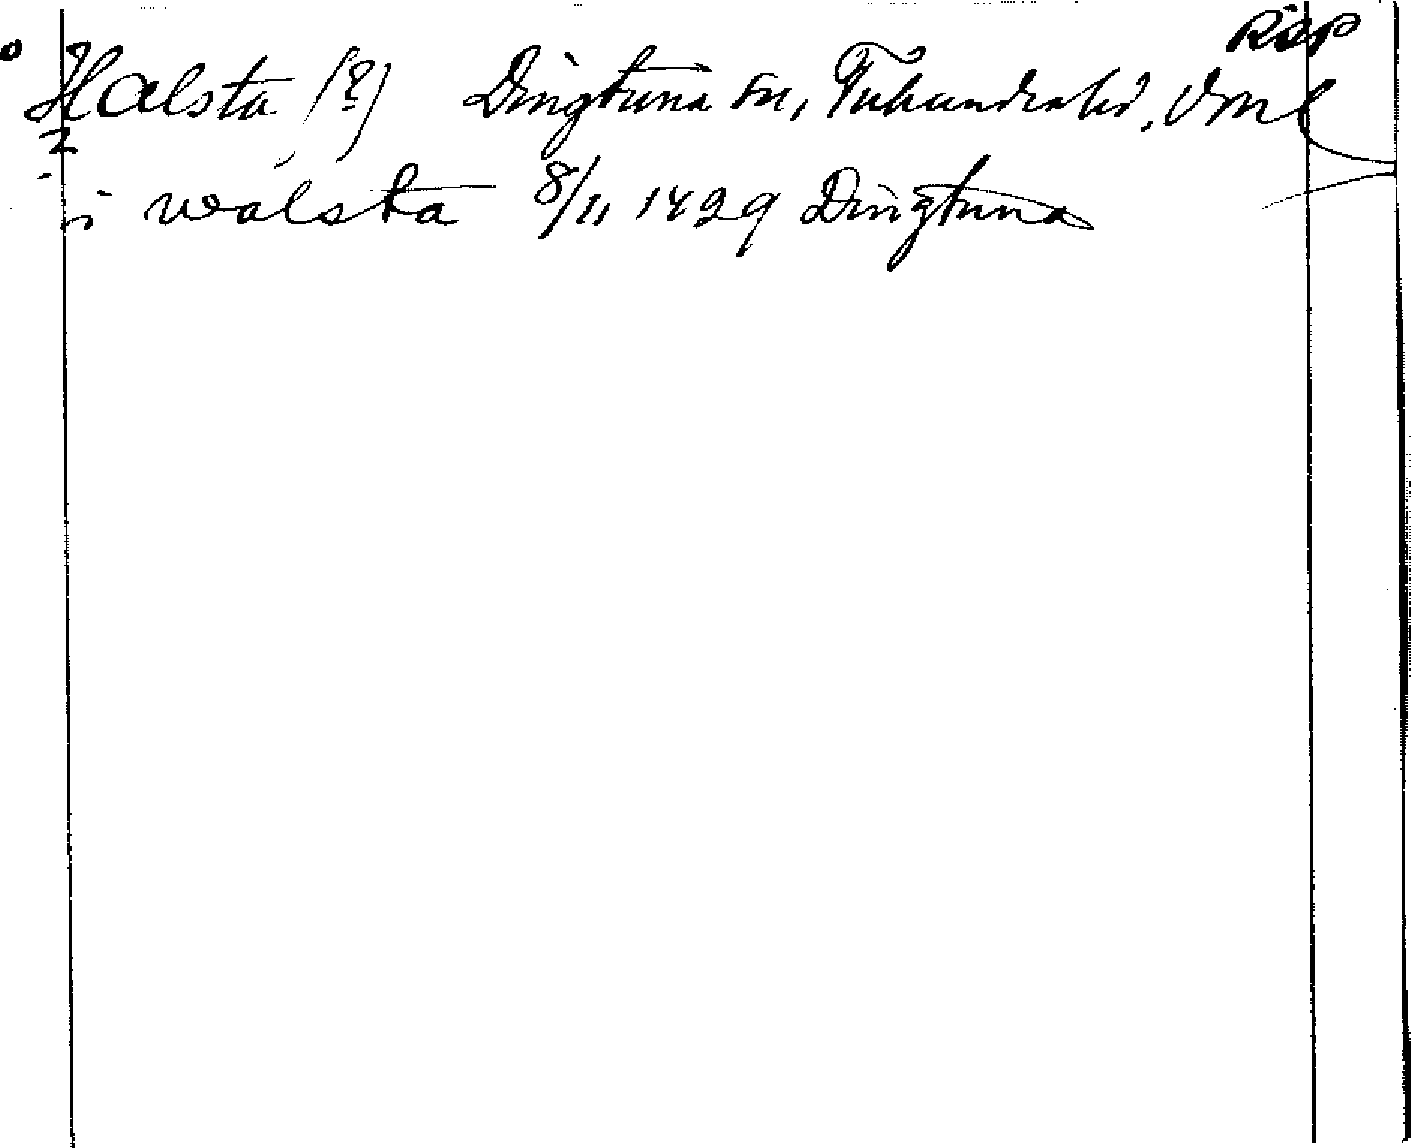 Räp
Halsta (?) Dingtuna sn, Tuhundra hd, Vml
i walsta 8/11 1429 Dingtuna